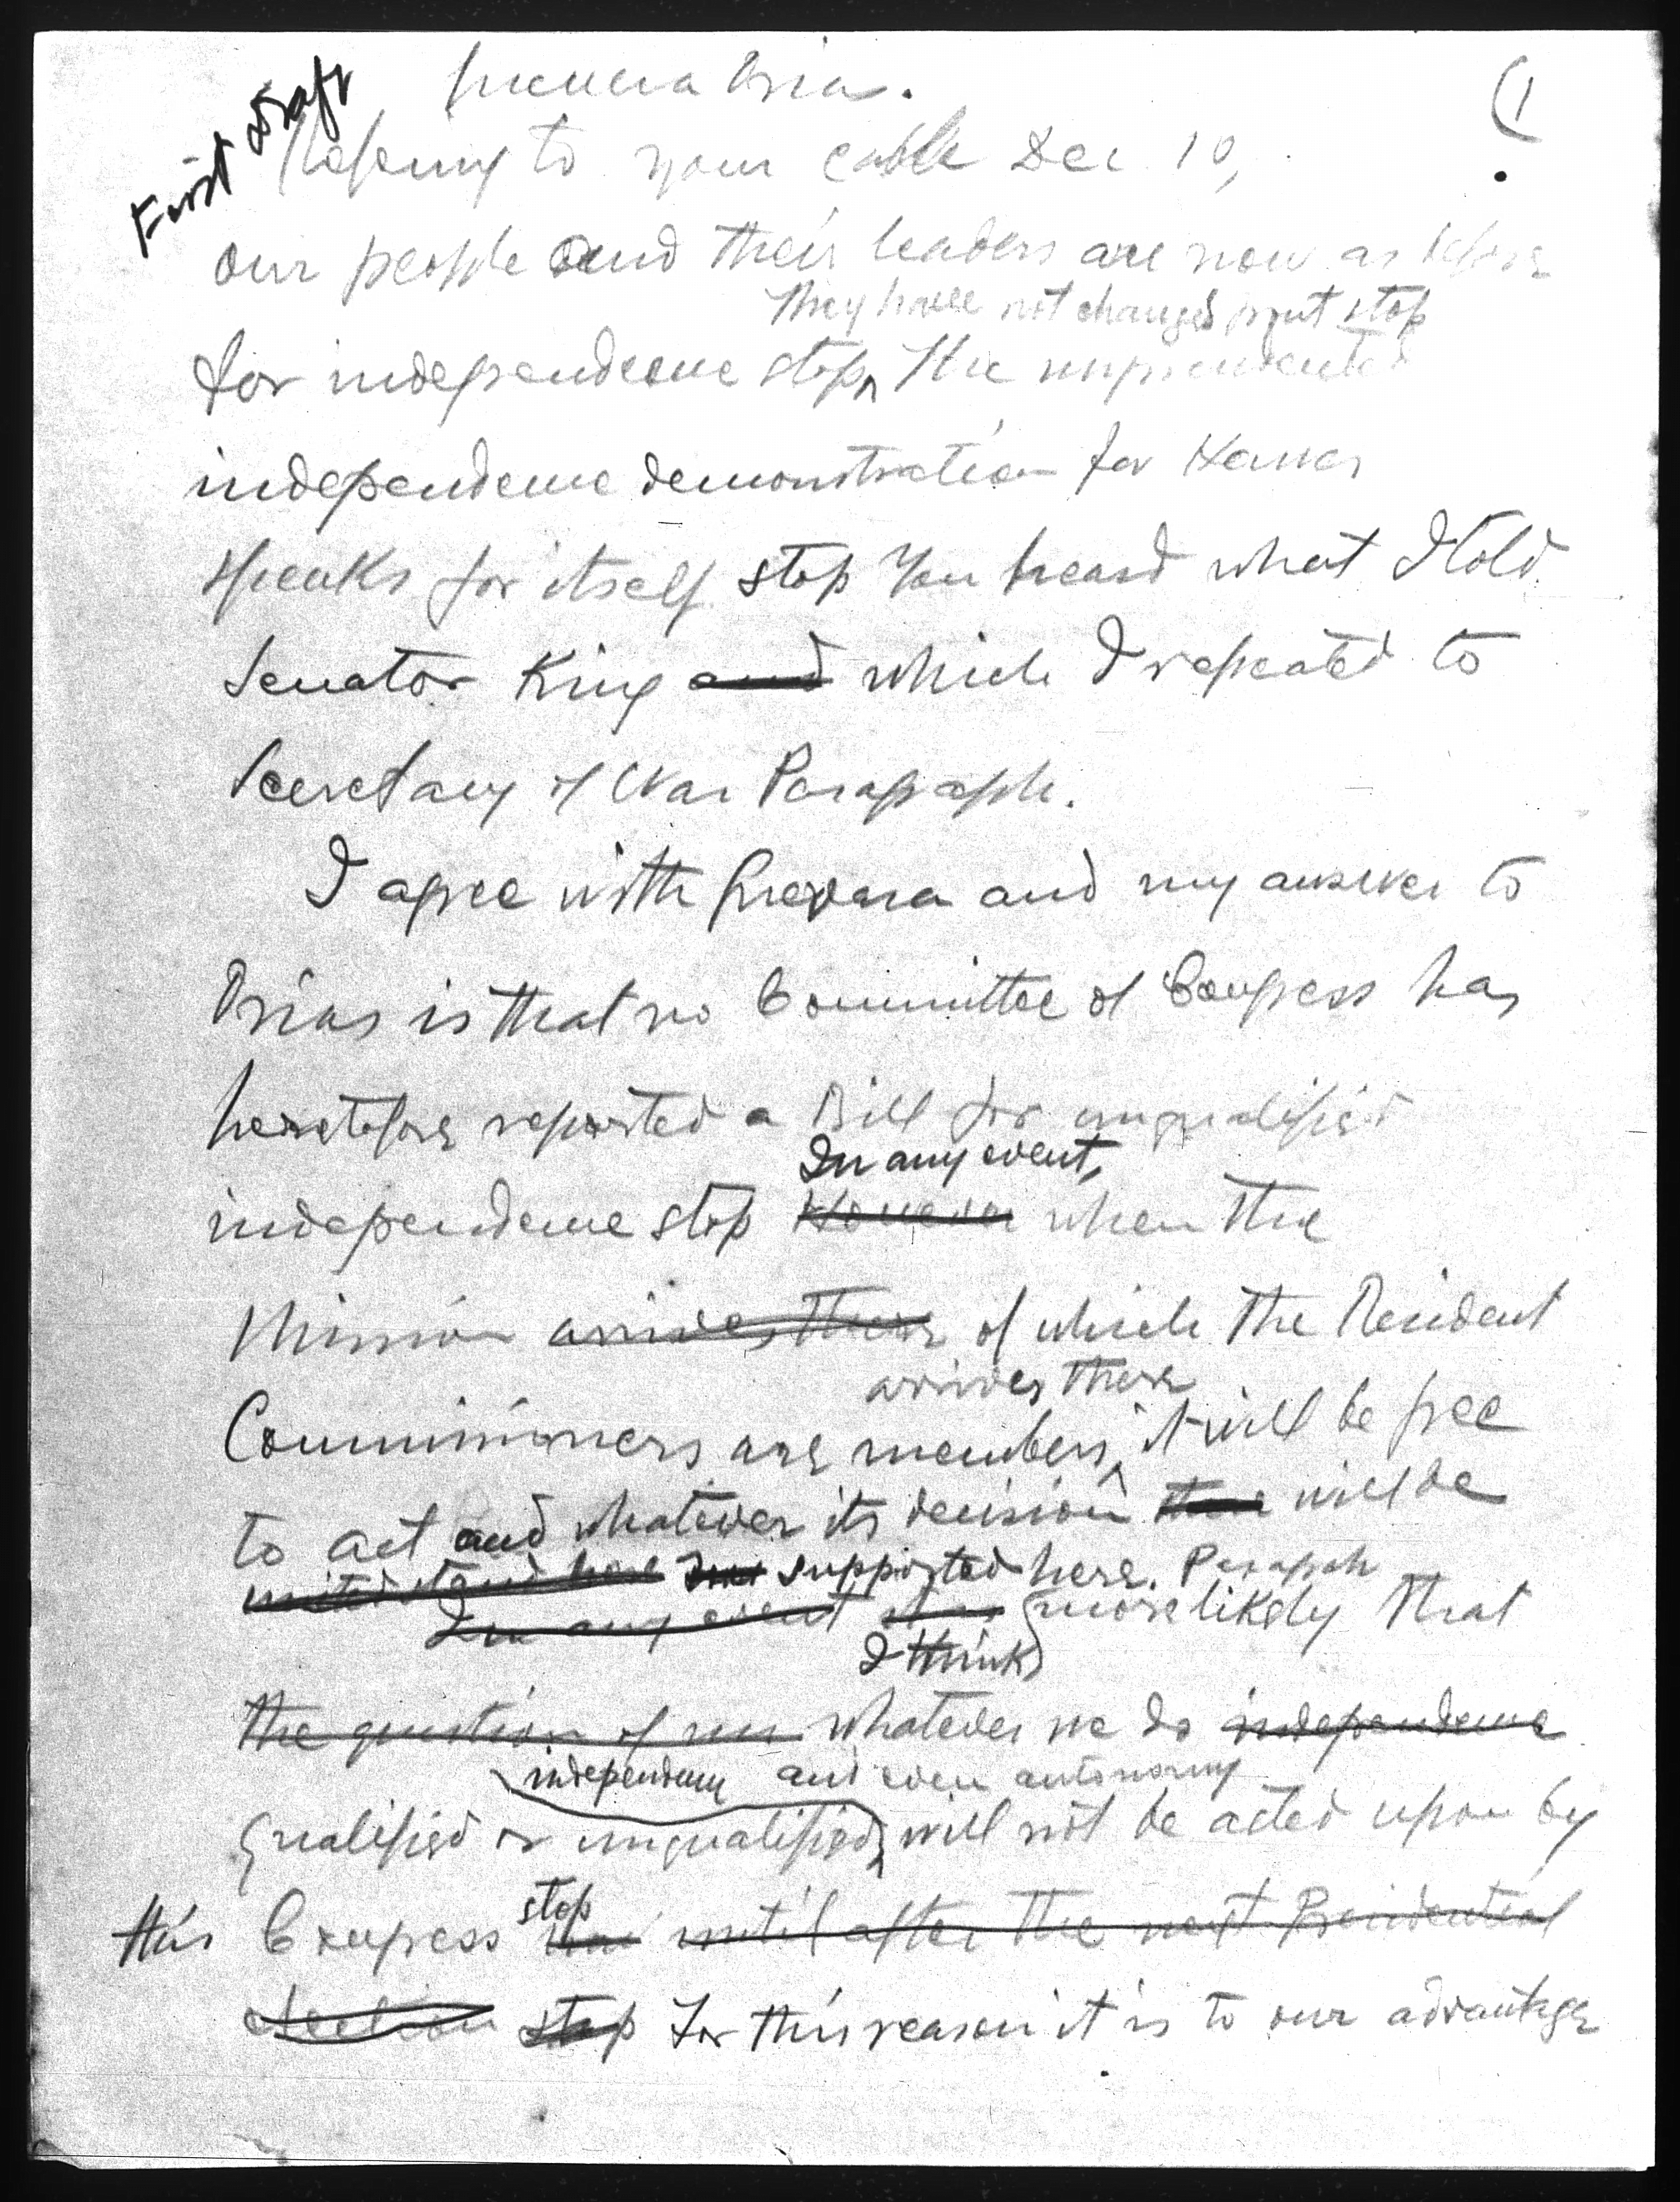 First Draft
Guevara Osias.
(1
Refering to your cable Dec 10,
our people and their leaders are now as before
They have not changed front stop
for independence stop ^ The unprecedented
independence demonstration for Hawes
speaks for itself stop You heard what I told
Senator King and which I repeated to
Secretary of War Paragraph.
I agree with Guevara and my answer to
Osias is that no Committee of Congress has
heretofore reported a Bill for unqualified
In any event,
independence stop However when the
Mission arrives there of which the Resident
arrives there
Commissioners are members, it will be free
to act and whatever its decision will be
supported here. Paragraph
In any event more likely that
I think
the question of whatever we do independence
independence and even autonomy
qualified or unqualified, will not be acted upon by
stop
this Congress until after the next Presidential
election stop For this reason it is to our advantage